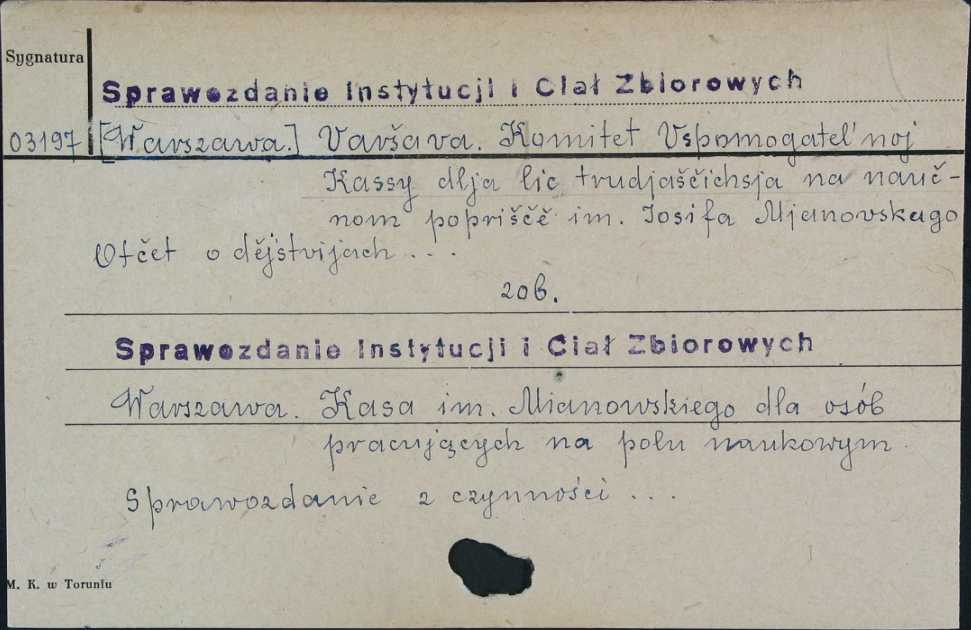 Sygnatura
Sprawozdanie Instytucji i Ciał Zbiorowych
03197 [Warszawa.] Varšava. Komitet Vspomogatel'noj
Kassy dlja lic trudjaščichsja na nauč-
nom popriščě im. Iosifa Mjanovskago
Otčet o dějstvijach ...
zob.
Sprawozdanie Instytucji i Ciał Zbiorowych
Warszawa. Kasa im. Mianowskiego dla osób
pracujących na polu naukowym.
Sprawozdanie z czynności ...
M. K. w Toruniu